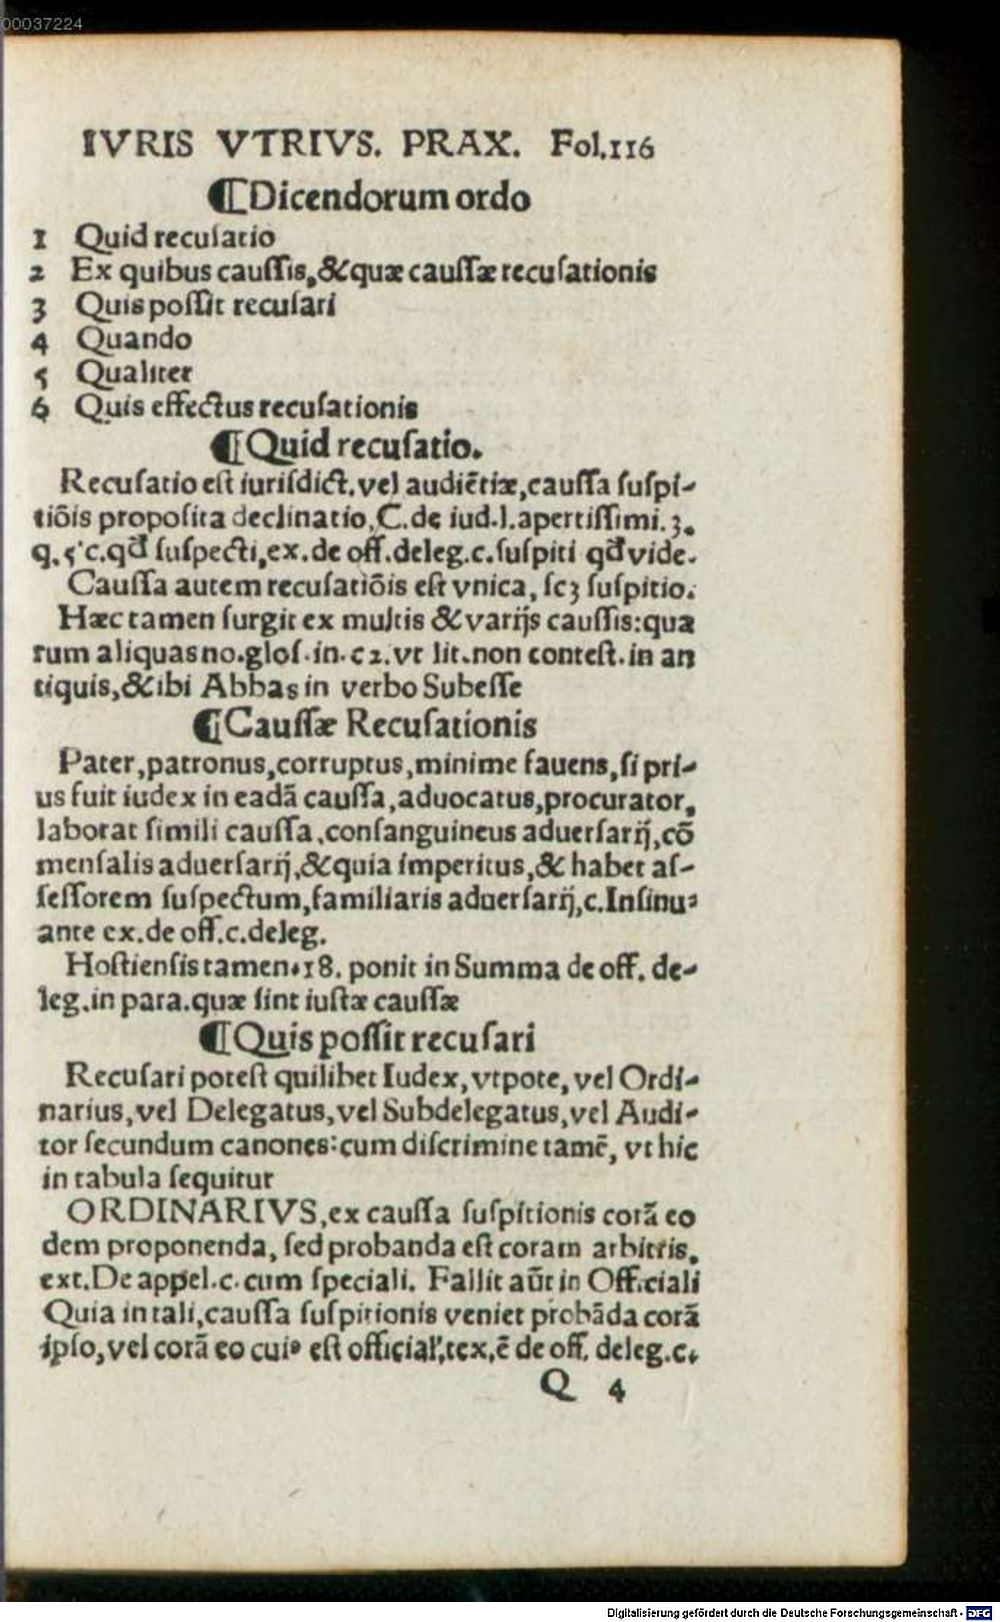 00037224
IVRIS VTRIVS. PRAX. Fol.116
¶Dicendorum ordo
1 Quid recuſatio
2 Ex quibus cauſſis,&quæ cauſſæ recuſationis
3 Quis poſſit recuſari
4 Quando
5 Qualiter
6 Quis effectus recuſationis
¶Quid recuſatio.
Recuſatio eſt iuriſdict. vel audiẽtiæ,cauſſa ſuſpi-
tiõis propoſita declinatio, C. de iud.l.apertiſſimi.3.
q.5 c.qđ ſuſpecti,ex.de off.deleg.c.ſuſpiti qđ vide.
Cauſſa autem recuſatiõis eſt vnica, ſcʒ ſuſpitio.
Hæc tamen ſurgit ex multis &varijs cauſſis:qua
rum aliquas no.gloſ.in.c 2.vt lit.non conteſt.in an
tiquis,&ibi Abbas in verbo Subeſſe
¶Cauſſæ Recuſationis
Pater,patronus,corruptus,minime fauens,ſi pri-
us fuit iudex in eadã cauſſa,aduocatus,procurator,
laborat ſimili cauſſa,conſanguineus aduerſarij,cõ
menſalis aduerſarij,&quia imperitus,& habet aſ-
ſeſſorem ſuſpectum,familiaris aduerſarij,c.Inſinu-
ante ex.de off.c.deleg.
Hoſtienſis tamen.18. ponit in Summa de off. de-
leg.in para.quæ ſint iuſtæ cauſſæ
¶Quis poſſit recuſari
Recuſari poteſt quilibet Iudex,vtpote, vel Ordi-
narius,vel Delegatus,vel Subdelegatus,vel Audi-
tor ſecundum canones:cum diſcrimine tamẽ, vt hic
in tabula ſequitur
ORDINARIVS,ex cauſſa ſuſpitionis corã eo
dem proponenda, ſed probanda eſt coram arbitris.
ext.De appel.c.cum ſpeciali. Fallit aũt in Officiali
Quia in tali,cauſſa ſuſpitionis veniet probãda corã
ipſo,vel corã eo cuiꝰ eſt official',tex,ẽ de off. deleg.c.
Q 4
Digitalisierung gefördert durch die Deutsche Forschungsgemeinschaft - DFG